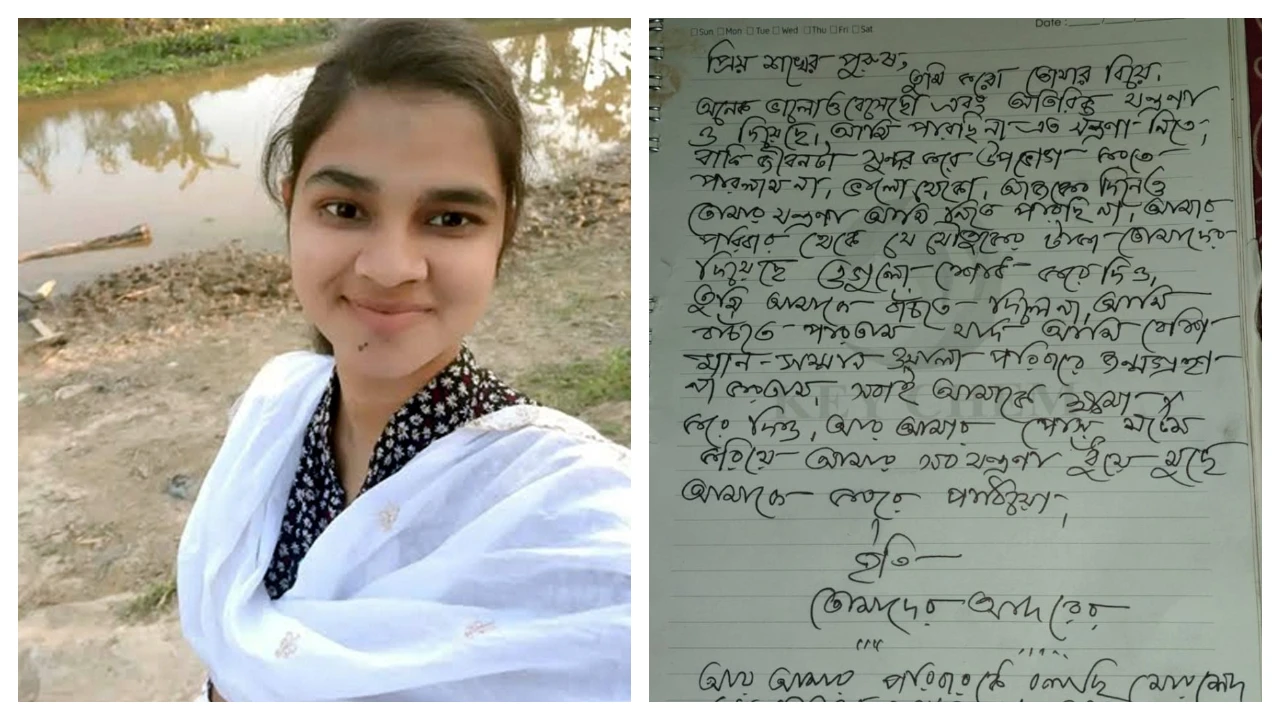 Date :
Sun Mon Tue Wed Thu Fri Sat
প্রিয় শখের পুরুষ,
তুমি করো তোমার বিয়ে,
অনেক ভালোও বেসেছো এবং অতিরিক্ত যন্ত্রণা
ও দিয়েছে, আমি পারছি না এত যন্ত্রণা নিতে,
বাকি জীবনটা সুন্দর করে উপভোগ করতে
পারলাম না, ভালো থেকো, আজকের দিনও
তোমার যন্ত্রণা আমি নিতে পারছি না, আমার
পরিবার থেকে যে যৌতুকের টাকা তোমাদের
দিয়েছে ওগুলো শোধ করে দিও,
তুমি আমাকে বাঁচতে দিলে না, আমি
বাঁচতে পারতাম যদি আমি বেশি
মান-সম্মান ওয়ালা পরিবারে জন্মগ্রহণ
না করতাম, সবাই আমাকে ক্ষমা
করে দিও, আর আমার পোস্ট মর্টেম
করিয়ে আমার সব যন্ত্রণা ধুঁয়ে মুছে
আমাকে কবরে পাঠাইয়া,
ইতি
তোমাদের আদরের
আর আমার পরিবারকে বলছি